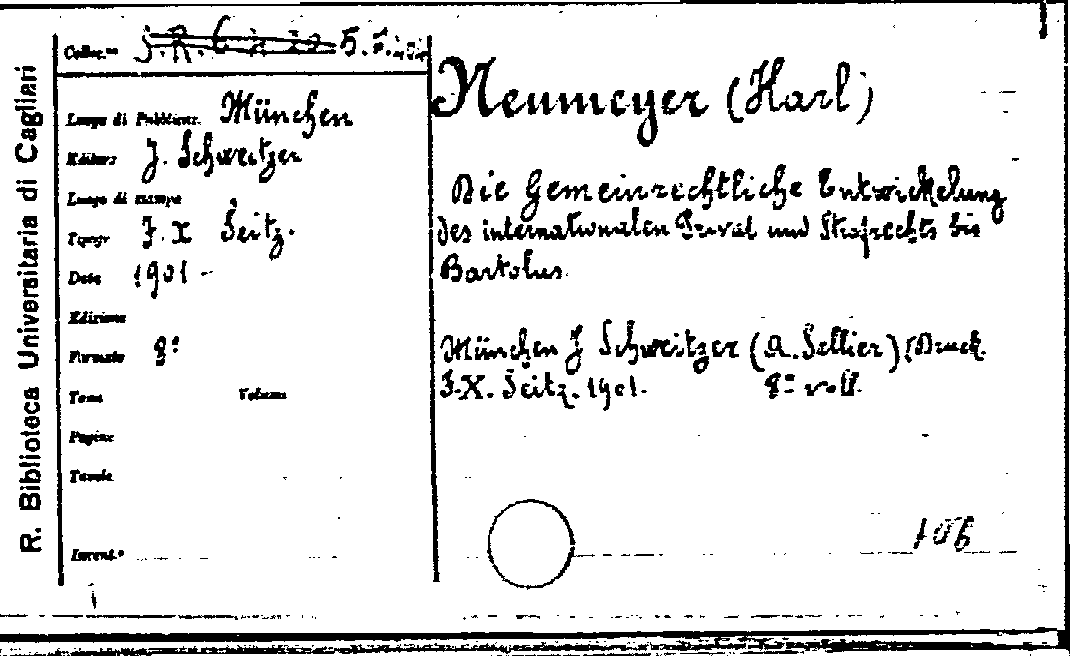 R. Biblioteca Universitaria di Cagliari
Colloc.ne
Luogo di Pubblicaz. München
Editore J. Schweitzer
Luogo di stampa
Tipogr. F. X Seitz.
Data 1901 -
Edizione
Formato 8°
Tomo Volume
Pagine
Tavole
Invent.°
Neumeyer (Karl)
Die Gemeinrechtliche Entwickelung
des internationalen Privat und Strafrechts bis
Bartolus.
München J Schweitzer (A. Sellier) (Druck.
F.X. Seitz. 1901. 8°
106